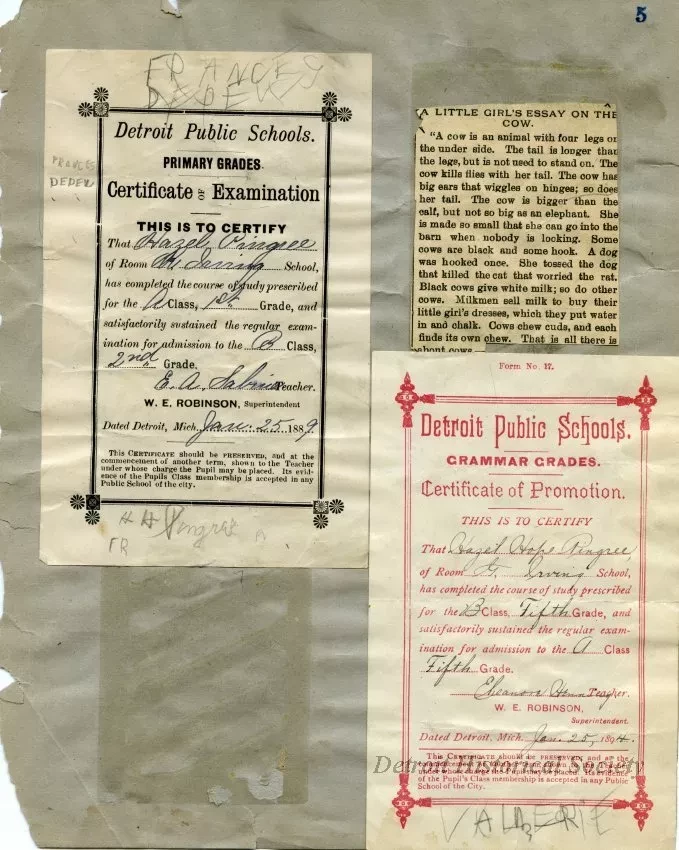 5
FRANCES
DEDEV
Detroit Public Schools.
PRIMARY GRADES.
Certificate OF Examination
THIS IS TO CERTIFY
That Hazel Pingree
of Room Irving School,
has completed the course of study prescribed
for the A Class, 1st Grade, and
satisfactorily sustained the regular exam-
ination for admission to the B Class,
2nd Grade.
E. A. Teacher.
W. E. ROBINSON, Superintendent
Dated Detroit, Mich. Jan. 25 1889.
This CERTIFICATE should be PRESERVED, and at the
commencement of another term, shown to the Teacher
under whose charge the Pupil may be placed. Its evid-
ence of the Pupils Class membership is accepted in any
Public School of the city.
FR
A LITTLE GIRL'S ESSAY ON THE
COW.
"A cow is an animal with four legs on
the under side. The tail is longer than
the legs, but is not used to stand on. The
cow kills flies with her tail. The cow has
big ears that wiggles on hinges; so does
her tail. The cow is bigger than the
calf, but not so big as an elephant. She
is made so small that she can go into the
barn when nobody is looking. Some
cows are black and some hook. A dog
was hooked once. She tossed the dog
that killed the cat that worried the rat.
Black cows give white milk; so do other
cows. Milkmen sell milk to buy their
little girl's dresses, which they put water
in and chalk. Cows chew cuds, and each
finds its own chew. That is all there is
about cows
Form No. 17.
Detroit Public Schools.
GRAMMAR GRADES.
Certificate of Promotion.
THIS IS TO CERTIFY
That Hazel Hope Pingree
of Room G. Irving School,
has completed the course of study prescribed
for the B Class, Fifth Grade, and
satisfactorily sustained the regular exam-
ination for admission to the A Class
Fifth Grade.
Eleanora Teacher.
W. E. ROBINSON,
Superintendent.
Dated Detroit, Mich. Jan. 25, 1894.
This CERTIFICATE should be PRESERVED, and at the
under whose charge the Pupil may be placed. Its evidence
of the Pupil's Class membership is accepted in any Public
School of the City.
Detroit Historical Society
VALDERIE